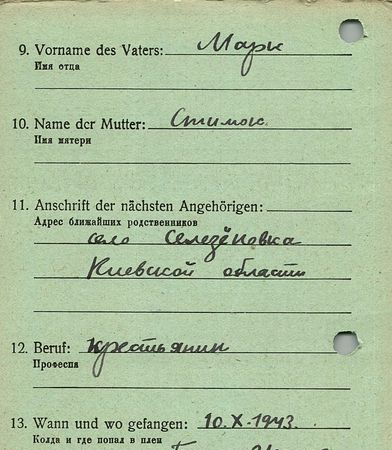 9. Vorname des Vaters: Марк
Имя отца
10. Name der Mutter:
Имя матери
11. Anschrift der nächsten Angehörigen:
Адрес ближайших родственников
село Селезёновка
Киевской области
12. Beruf: крестьянин
Професия
13. Wann und wo gefangen: 10.X.1943.
Колда и где попал в плен